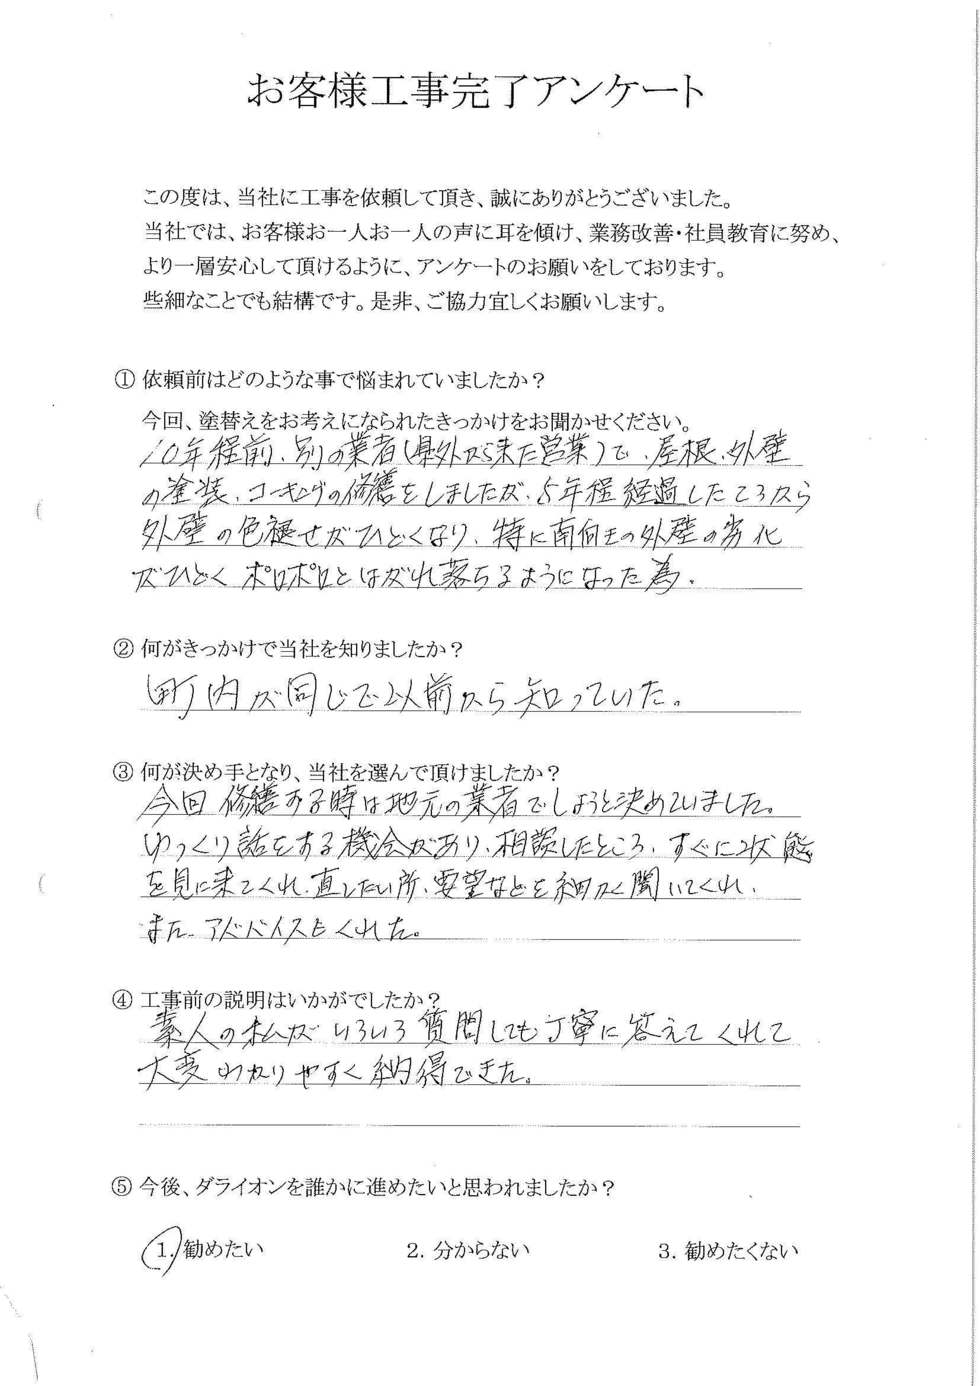 お客様工事完了アンケート
この度は、当社に工事を依頼して頂き、誠にありがとうございました。
当社では、お客様お一人お一人の声に耳を傾け、業務改善・社員教育に努め、
より一層安心して頂けるように、アンケートのお願いをしております。
些細なことでも結構です。是非、ご協力宜しくお願いします。
① 依頼前はどのような事で悩まれていましたか？
今回、塗替えをお考えになられたきっかけをお聞かせください。
10年程前、別の業者(県外から来た営業)で、屋根、外壁
の塗装、コーキングの修繕をしましたが、5年程経過したころから
外壁の色褪せがひどくなり、特に南向きの外壁の劣化
がひどくポロポロとはがれ落ちるようになった為、
② 何がきっかけで当社を知りましたか？
町内が同じで以前から知っていた。
③ 何が決め手となり、当社を選んで頂けましたか？
今回修繕する時は地元の業者でしようと決めていました。
ゆっくり話をする機会があり、相談したところ、すぐに状態
を見に来てくれ、直したい所、要望などを細かく聞いてくれ、
また、アドバイスもくれた。
④ 工事前の説明はいかがでしたか？
素人の私がいろいろ質問しても丁寧に答えてくれて
大変わかりやすく納得できた。
⑤ 今後、ダライオンを誰かに進めたいと思われましたか？
1. 勧めたい 2. 分からない 3. 勧めたくない